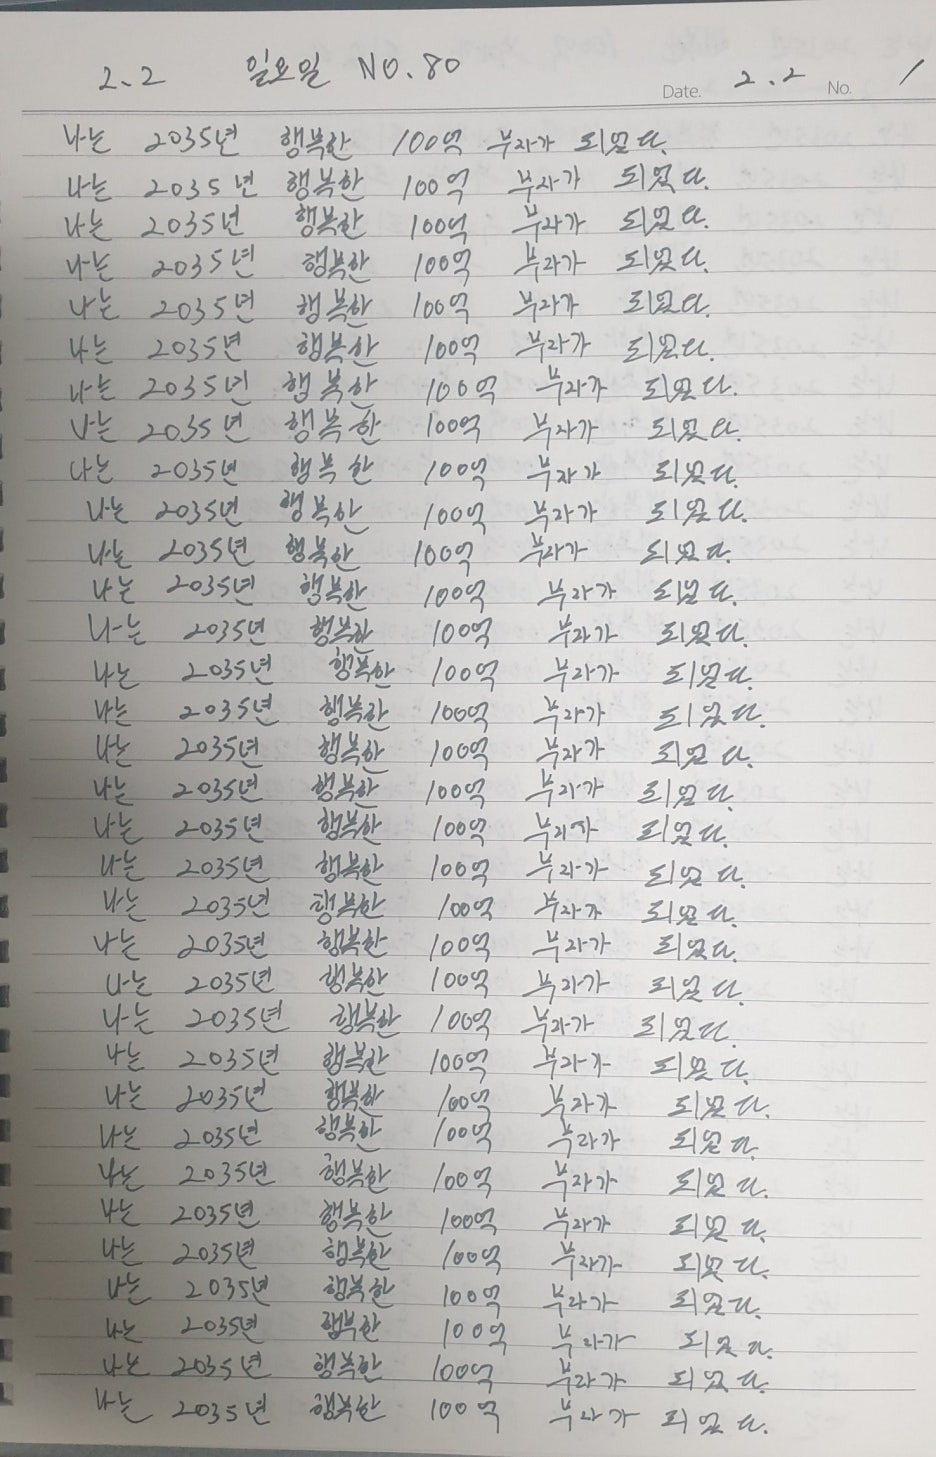 2.2 일요일 NO.80
Date. 2.2 No. 1
나는 2035년 행복한 100억 부자가 되었다.
나는 2035년 행복한 100억 부자가 되었다.
나는 2035년 행복한 100억 부자가 되었다.
나는 2035년 행복한 100억 부자가 되었다.
나는 2035년 행복한 100억 부자가 되었다.
나는 2035년 행복한 100억 부자가 되었다.
나는 2035년 행복한 100억 부자가 되었다.
나는 2035년 행복한 100억 부자가 되었다.
나는 2035년 행복한 100억 부자가 되었다.
나는 2035년 행복한 100억 부자가 되었다.
나는 2035년 행복한 100억 부자가 되었다.
나는 2035년 행복한 100억 부자가 되었다.
나는 2035년 행복한 100억 부자가 되었다.
나는 2035년 행복한 100억 부자가 되었다.
나는 2035년 행복한 100억 부자가 되었다.
나는 2035년 행복한 100억 부자가 되었다.
나는 2035년 행복한 100억 부자가 되었다.
나는 2035년 행복한 100억 부자가 되었다.
나는 2035년 행복한 100억 부자가 되었다.
나는 2035년 행복한 100억 부자가 되었다.
나는 2035년 행복한 100억 부자가 되었다.
나는 2035년 행복한 100억 부자가 되었다.
나는 2035년 행복한 100억 부자가 되었다.
나는 2035년 행복한 100억 부자가 되었다.
나는 2035년 행복한 100억 부자가 되었다.
나는 2035년 행복한 100억 부자가 되었다.
나는 2035년 행복한 100억 부자가 되었다.
나는 2035년 행복한 100억 부자가 되었다.
나는 2035년 행복한 100억 부자가 되었다.
나는 2035년 행복한 100억 부자가 되었다.
나는 2035년 행복한 100억 부자가 되었다.
나는 2035년 행복한 100억 부자가 되었다.
나는 2035년 행복한 100억 부자가 되었다.